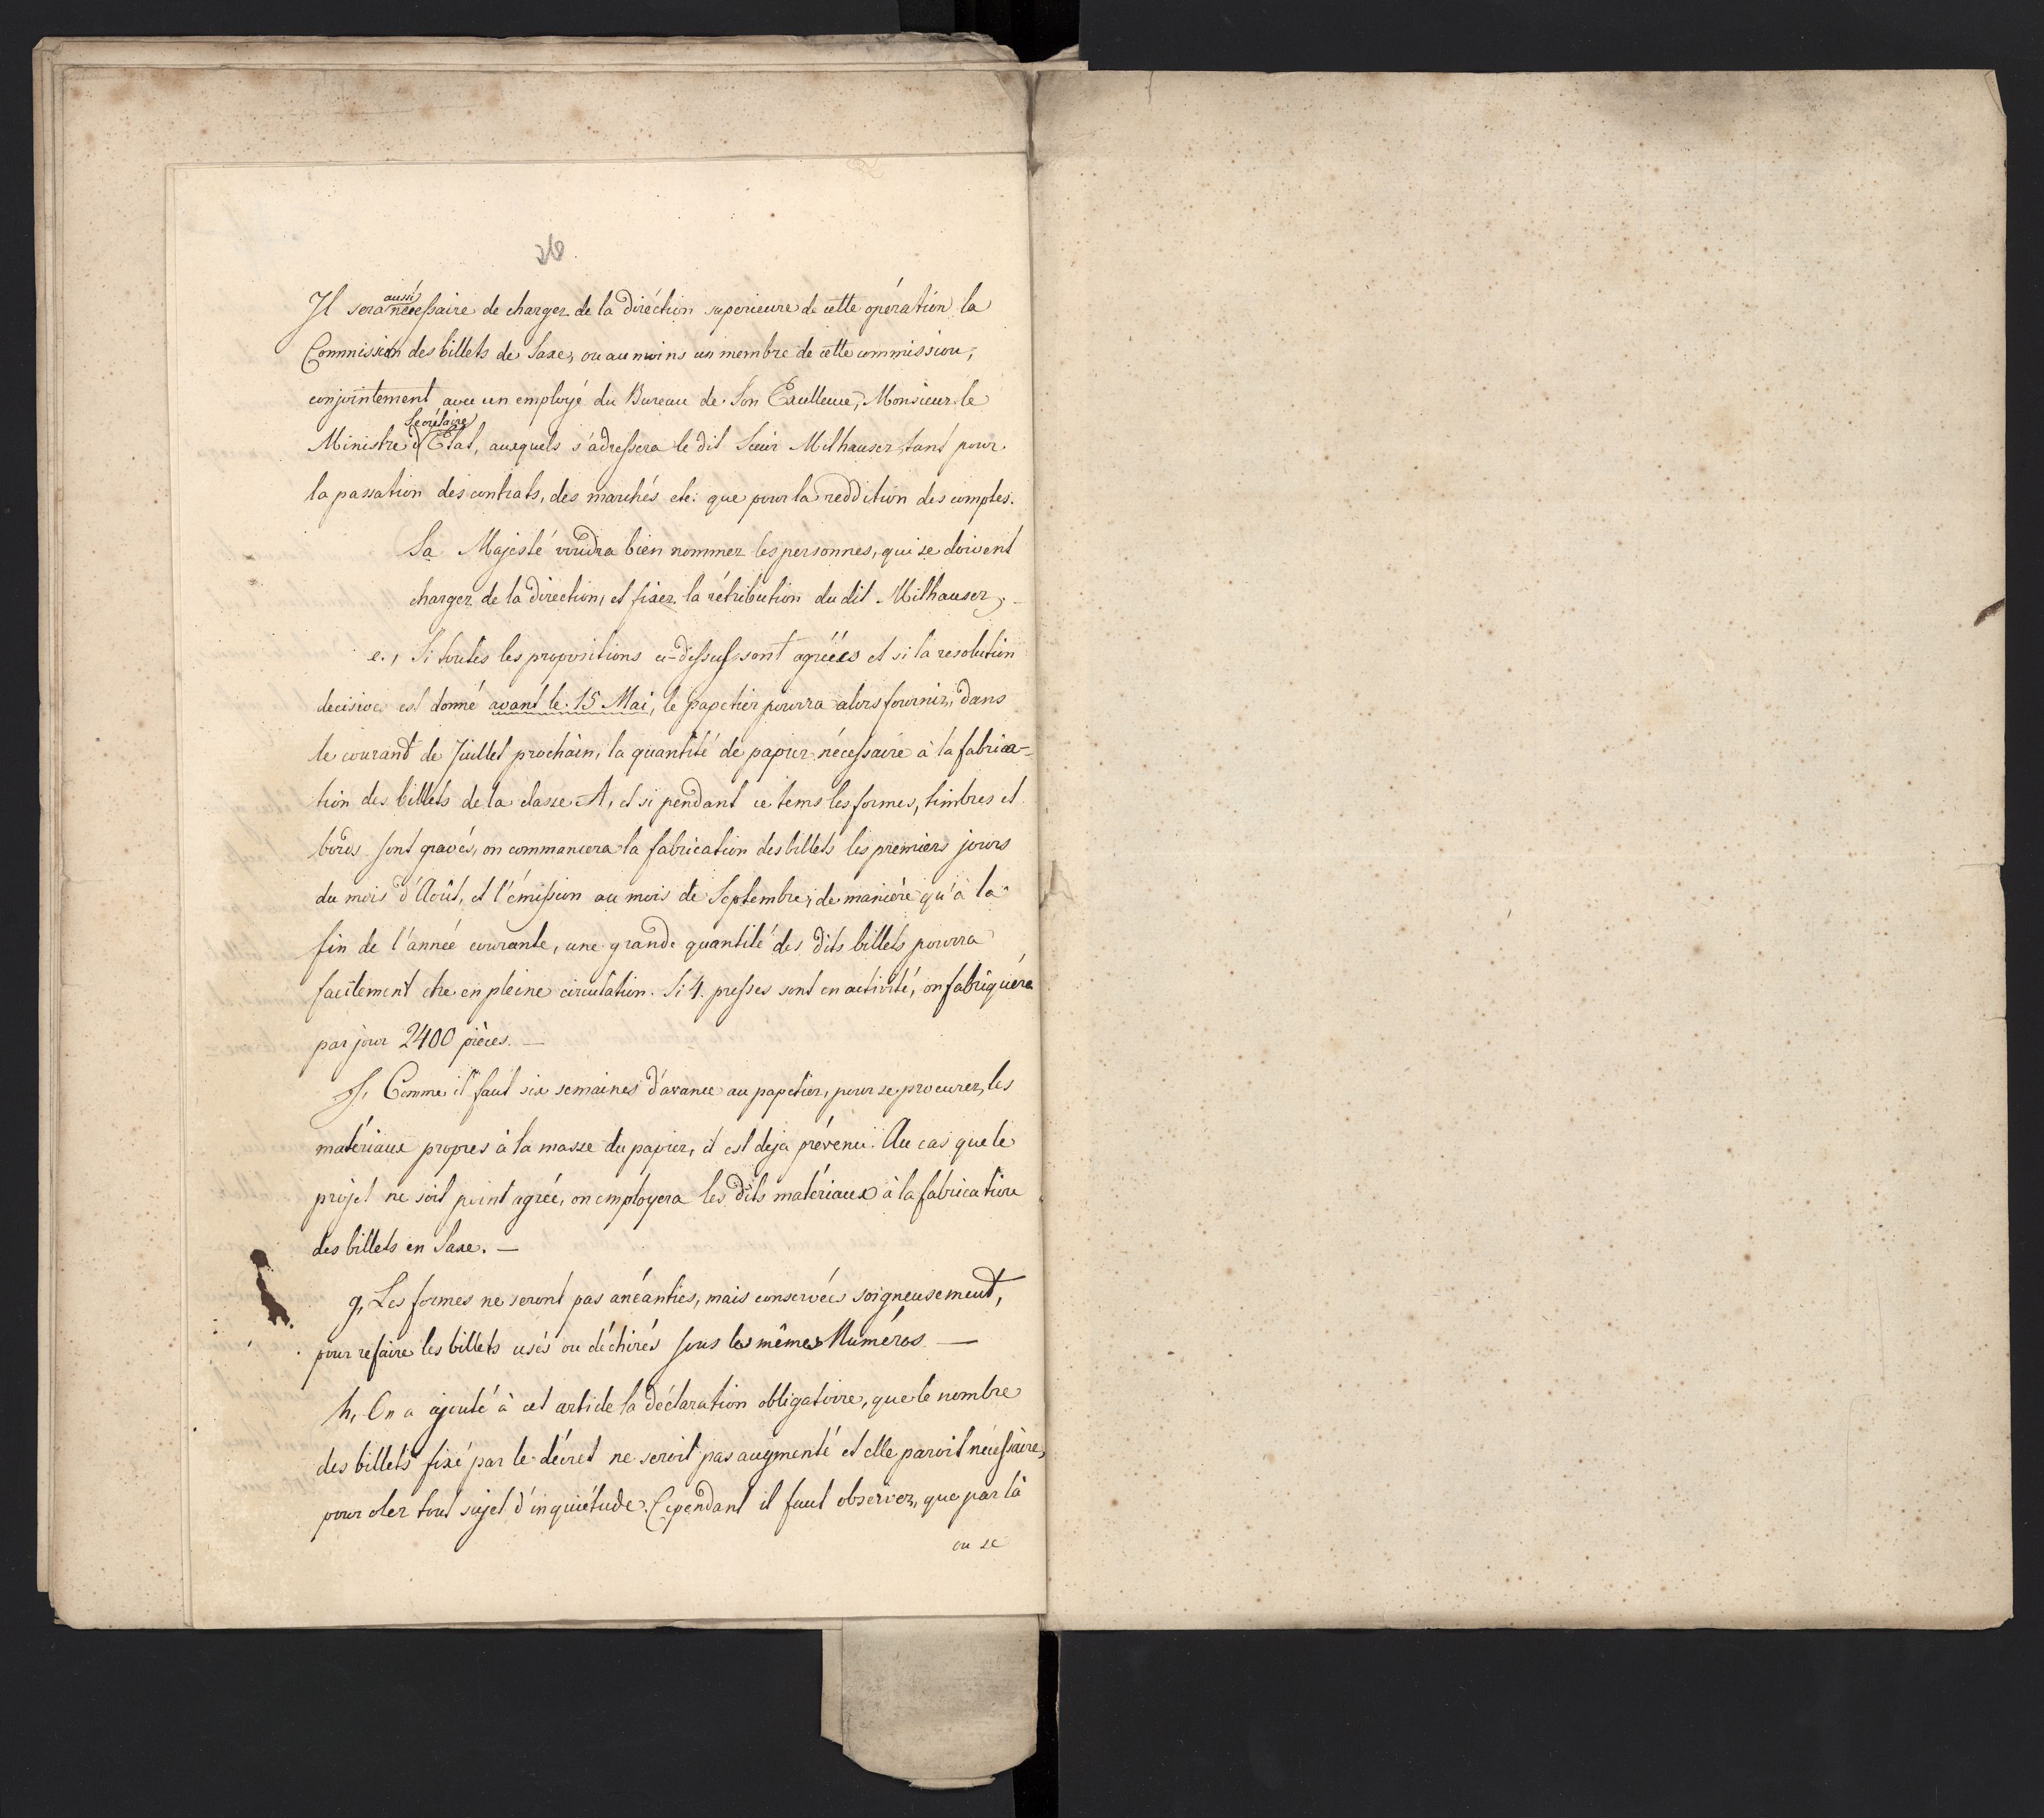 26.
Il sera aussi nécessaire de charger de la diréction superieure de cette opération la
Commission des billets de Saxe, ou au moins un membre de cette commission,
conjointement avec un employé du Bureau de Son Excellence, Monsieur le
Ministre Secrétaire d'Etat, auxquels s'adressera le dit Sieur Milhauser, tant pour
la passation des contrats, des marchés etc. que pour la reddition des comptes.
Sa Majesté voudra bien nommer les personnes, qui se doivent
charger de la direction, et fixer la rétribution du dit Milhauser.
e., Si toutes les propositions ci-dessus sont agréées et si la resolution
decisive est donné avant le 15 Mai, le papetier pourra alors fournir, dans
le courant de Juillet prochain, la quantité de papier nécessaire à la fabrica-
tion des billets de la classe A, et si pendant ce tems les formes, timbres et
bords sont gravés, on commancera la fabrication des billets les premiers jours
du mois d'Août, et l'émission au mois de Septembre, de manière qu'à la
fin de l'année courante, une grande quantité des dits billets pourra
facilement etre en pleine circulation. Si 4. presses sont en activité, on fabriquéra
par jour 2400 pièces. —
f, Comme il faut six semaines d'avance au papetier, pour se procurer, les
matériaux propres à la masse du papier, il est deja prévenu. Au cas que le
projet ne soit point agréé, on employera les dits matériaux à la fabrication
des billets en Saxe. —
g, Les formes ne seront pas anéanties, mais conservées soigneusement,
pour refaire les billets usés ou déchirés sous les mêmes Numéros —
h, On a ajouté à cet article la déclaration obligatoire, que le nombre
des billets fixé par le décret ne seroit pas augmenté et elle paroit nécessaire,
pour oter tout sujet d'inquiétude. Cependant il faut observer, que par là
on se